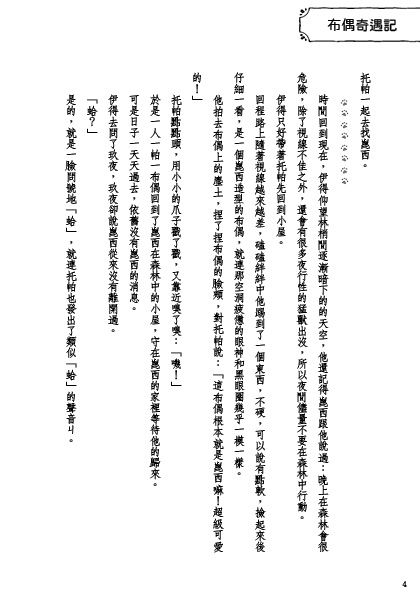 布偶奇遇記
托帕一起去找崑西。
時間回到現在，伊得仰望林梢間逐漸暗下的的天空，他還記得崑西跟他說過：晚上在森林會很
危險，除了視線不佳之外，還會有很多夜行性的猛獸出沒，所以夜間儘量不要在森林中行動。
伊得只好帶著托帕先回到小屋。
回程路上隨著視線越來越差，磕磕絆絆中他踢到了一個東西，不硬，可以說有點軟，撿起來後
仔細一看，是一個崑西造型的布偶，就連那空洞疲憊的眼神和黑眼圈幾乎一模一樣。
他拍去布偶上的塵土，捏了捏布偶的臉頰，對托帕說：「這布偶根本就是崑西嘛！超級可愛
的！」
托帕點點頭，用小小的爪子戳了戳，又靠近嗅了嗅：「嘰！」
於是一人一帕一布偶回到了崑西在森林中的小屋，守在崑西的家裡等待他的歸來。
可是日子一天天過去，依舊沒有崑西的消息。
伊得去問了玖夜，玖夜卻說崑西從來沒有離開過。
「蛤？」
是的，就是一臉問號地「蛤」，就連托帕也發出了類似「蛤」的聲音ㄐ。
4